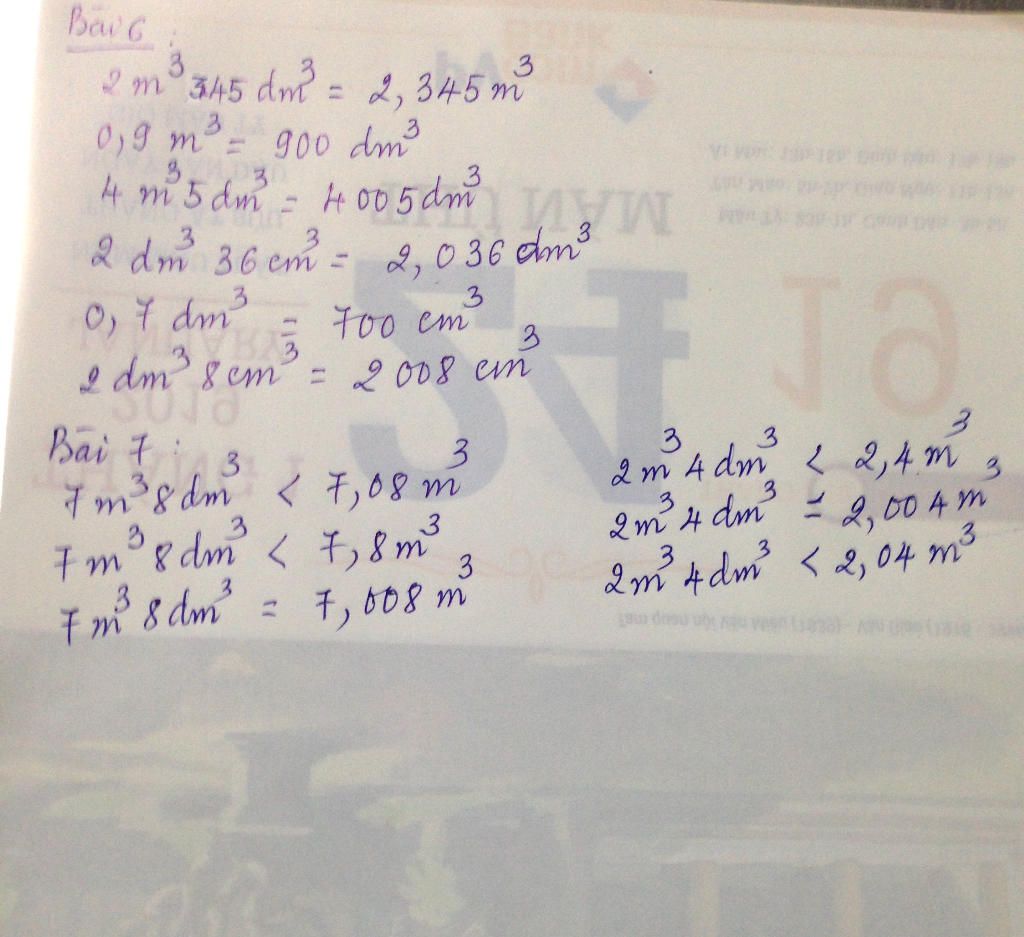 Bài 6 :
2 m³ 345 dm³ = 2,345 m³
0,9 m³ = 900 dm³
4 m³ 5 dm³ = 4 005 dm³
2 dm³ 36 cm³ = 2,036 dm³
0,7 dm³ = 700 cm³
2 dm³ 8 cm³ = 2 008 cm³
Bài 7 :
7 m³ 8 dm³ < 7,08 m³
7 m³ 8 dm³ < 7,8 m³
7 m³ 8 dm³ = 7,008 m³
2 m³ 4 dm³ < 2,4 m³
2 m³ 4 dm³ = 2,004 m³
2 m³ 4 dm³ < 2,04 m³
THỨ NĂM
24
19
JANUARY
2019
THÁNG 1